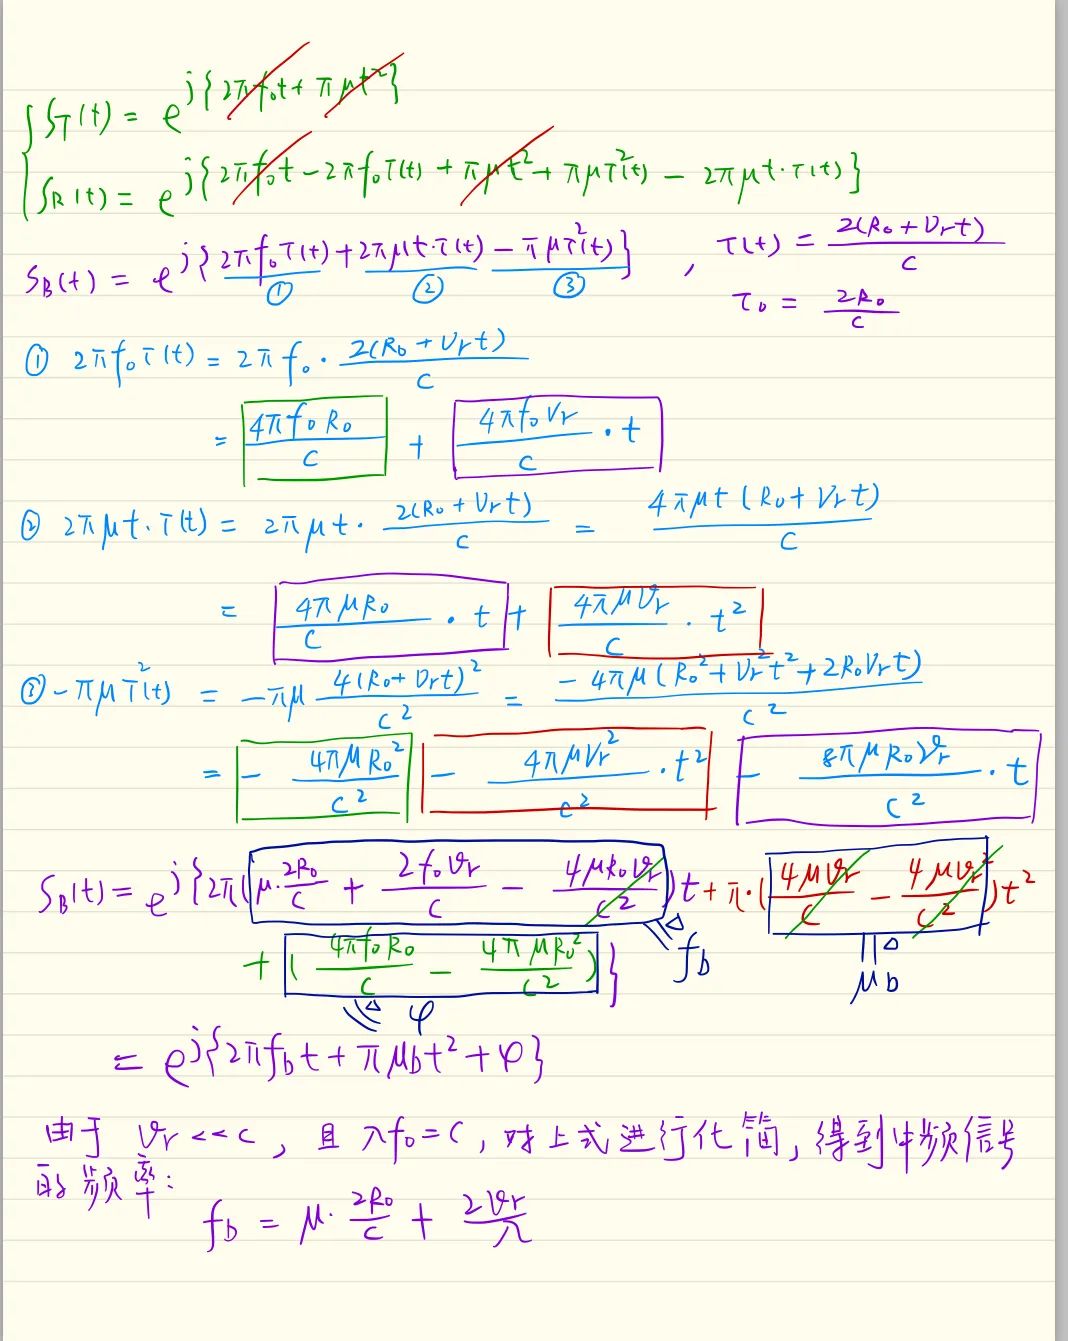 S_T(t) = e^{j{2πf₀t + πμt²}}
S_R(t) = e^{j{2πf₀t - 2πf₀τ(t) + πμt² + πμτ²(t) - 2πμt·τ(t)}}
S_B(t) = e^{j{2πf₀τ(t) + 2πμt·τ(t) - πμτ²(t)}} , τ(t) = 2(R₀+Vrt)/C
① ② ③ τ₀ = 2R₀/C
① 2πf₀τ(t) = 2πf₀ · 2(R₀+Vrt)/C
= 4πf₀R₀/C + 4πf₀Vr/C · t
② 2πμt·τ(t) = 2πμt · 2(R₀+Vrt)/C = 4πμt(R₀+Vrt)/C
= 4πμR₀/C · t + 4πμVr/C · t²
③ -πμτ²(t) = -πμ 4(R₀+Vrt)²/C² = -4πμ(R₀²+Vr²t²+2R₀Vrt)/C²
= - 4πμR₀²/C² - 4πμVr²/C² · t² - 8πμR₀Vr/C² · t
S_B(t) = e^{j{2π(μ·2R₀/C + 2f₀Vr/C - 4μR₀Vr/C²)t + π·(4μVr/C - 4μVr²/C²)t²
+ (4πf₀R₀/C - 4πμR₀²/C²)}} f_b μ_b
φ
= e^{j{2πf_bt + πμ_bt² + φ}}
由于 Vr<<C, 且 λf₀=C, 对上式进行化简, 得到中频信号
的频率:
f_b = μ·2R₀/C + 2Vr/λ